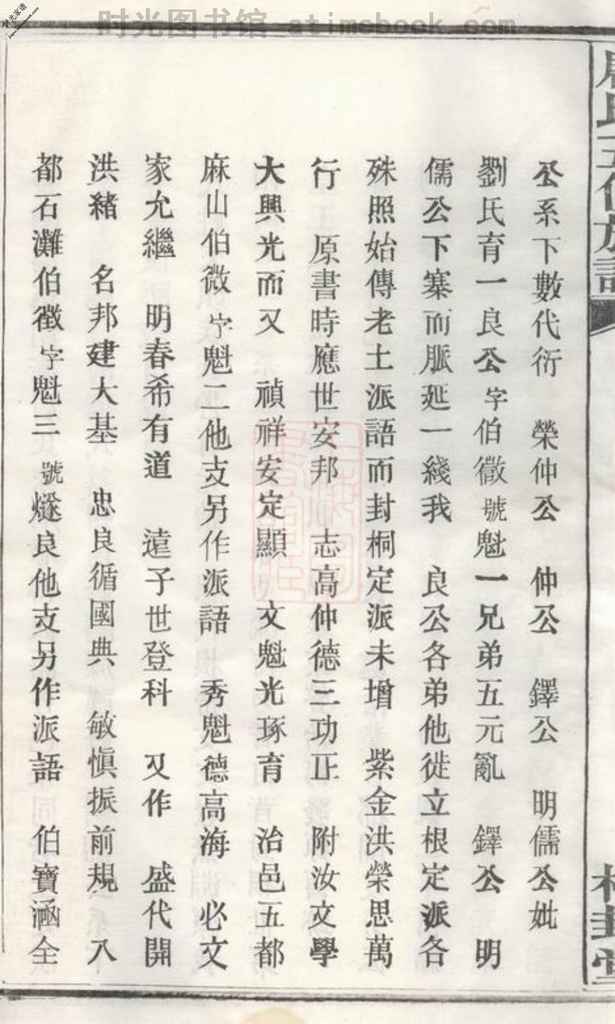 时光图书馆 atimebook.com
公系下數代衍 榮仲公 仲公 鐸公 明儒公妣
劉氏育一良公字伯徽號魁一兄弟五元亂 鐸公 明
儒公下寨而脈延一綫我 良公各弟他徙立根定派各
殊照始傳老土派語而封桐定派未增 紫金洪榮思萬
行 原書時應世安邦 志高仲德三功正 附汝文學
大興光而又 禎祥安定顯 文魁光琢育 治邑五都
麻山伯微字魁二他支另作派語 秀魁德高海 必文
家允繼 明春希有道 遠子世登科 又作 盛代開
洪緒 名邦建大基 忠良循國典 敏慎振前規 入
都石灘伯徵字魁三號燧良他支另作派語 伯寶涵全